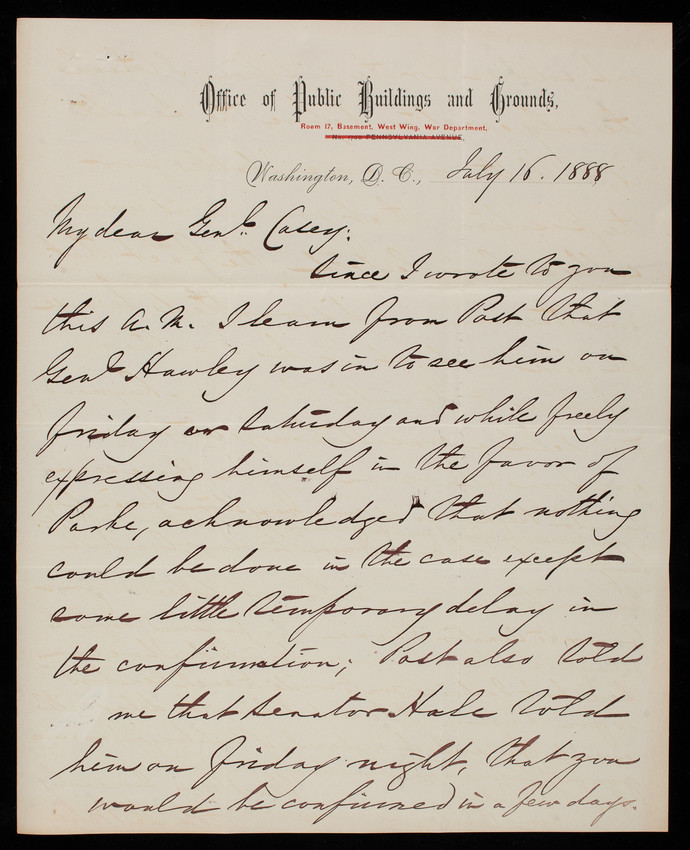 Office of Public Buildings and Grounds,
Room 17, Basement, West Wing, War Department,
No. 1700 PENNSYLVANIA AVENUE,
Washington, D. C., July 16. 1888
My dear Genl. Casey:
Since I wrote to you
this A.M. I learn from Post that
Genl Hawley was in to see him on
friday or saturday and while freely
expressing himself in the favor of
Parke, acknowledged that nothing
could be done in the case except
some little temporary delay in
the confirmation; Post also told
me that Senator Hale told
him on friday night, that you
would be confirmed in a few days.